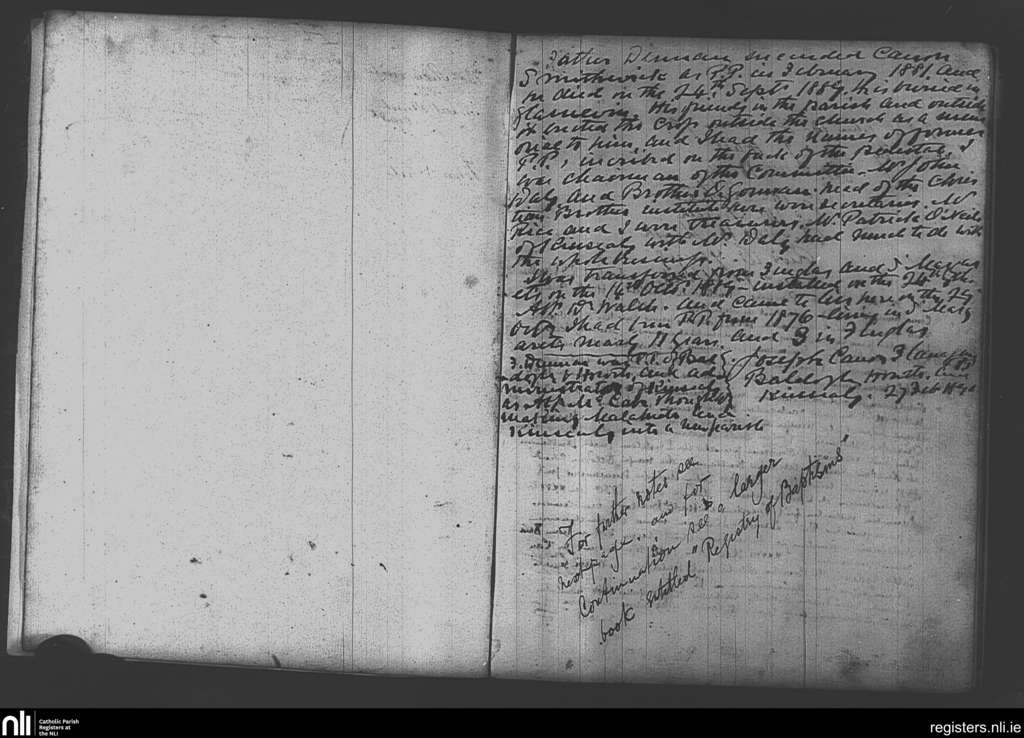 Father Dennan succeeded Canon
Smithwick as P.P. in February 1881. and
he died on the 24th Sept. 1889. he is buried in
Glasnevin. His friends in the parish and outside
it erected the Cross outside the church as a mem
orial to him, and I had the names of former
P.P.s inscribed on the back of the pedestal. I
was chairman of the Committee. Mr John
Daly and Brother O'Gorman head of the Chris
tian Brothers institute were secretaries. Mr
Rice and I were treasurers. Mr Patrick O'Neill
of Kinsealy with Mr. Daly had much to do with
the whole business.
I was transferred from Finglas and S. Marga
ets on the 14th Octr. 1889 - installed on the
by Dr Walsh. and came to live here on the
I had been P.P. from 1876 living in S. Marg
arets nearly 11 years. and 3 in Finglas
F. Dennan was P.P. of Bald
oyle & Howth, and ad
ministrator of Kinsealy
as
making Malahide and
Kinsealy into a new parish
Joseph Canon
Baldoyle Howth, and
Kinsealy. 27 Feb 1890
For further notes see
next page.. and for
Continuation see a larger
book entitled "Registry of Baptisms"
nli
Catholic Parish
Registers at
the NLI
registers.nli.ie